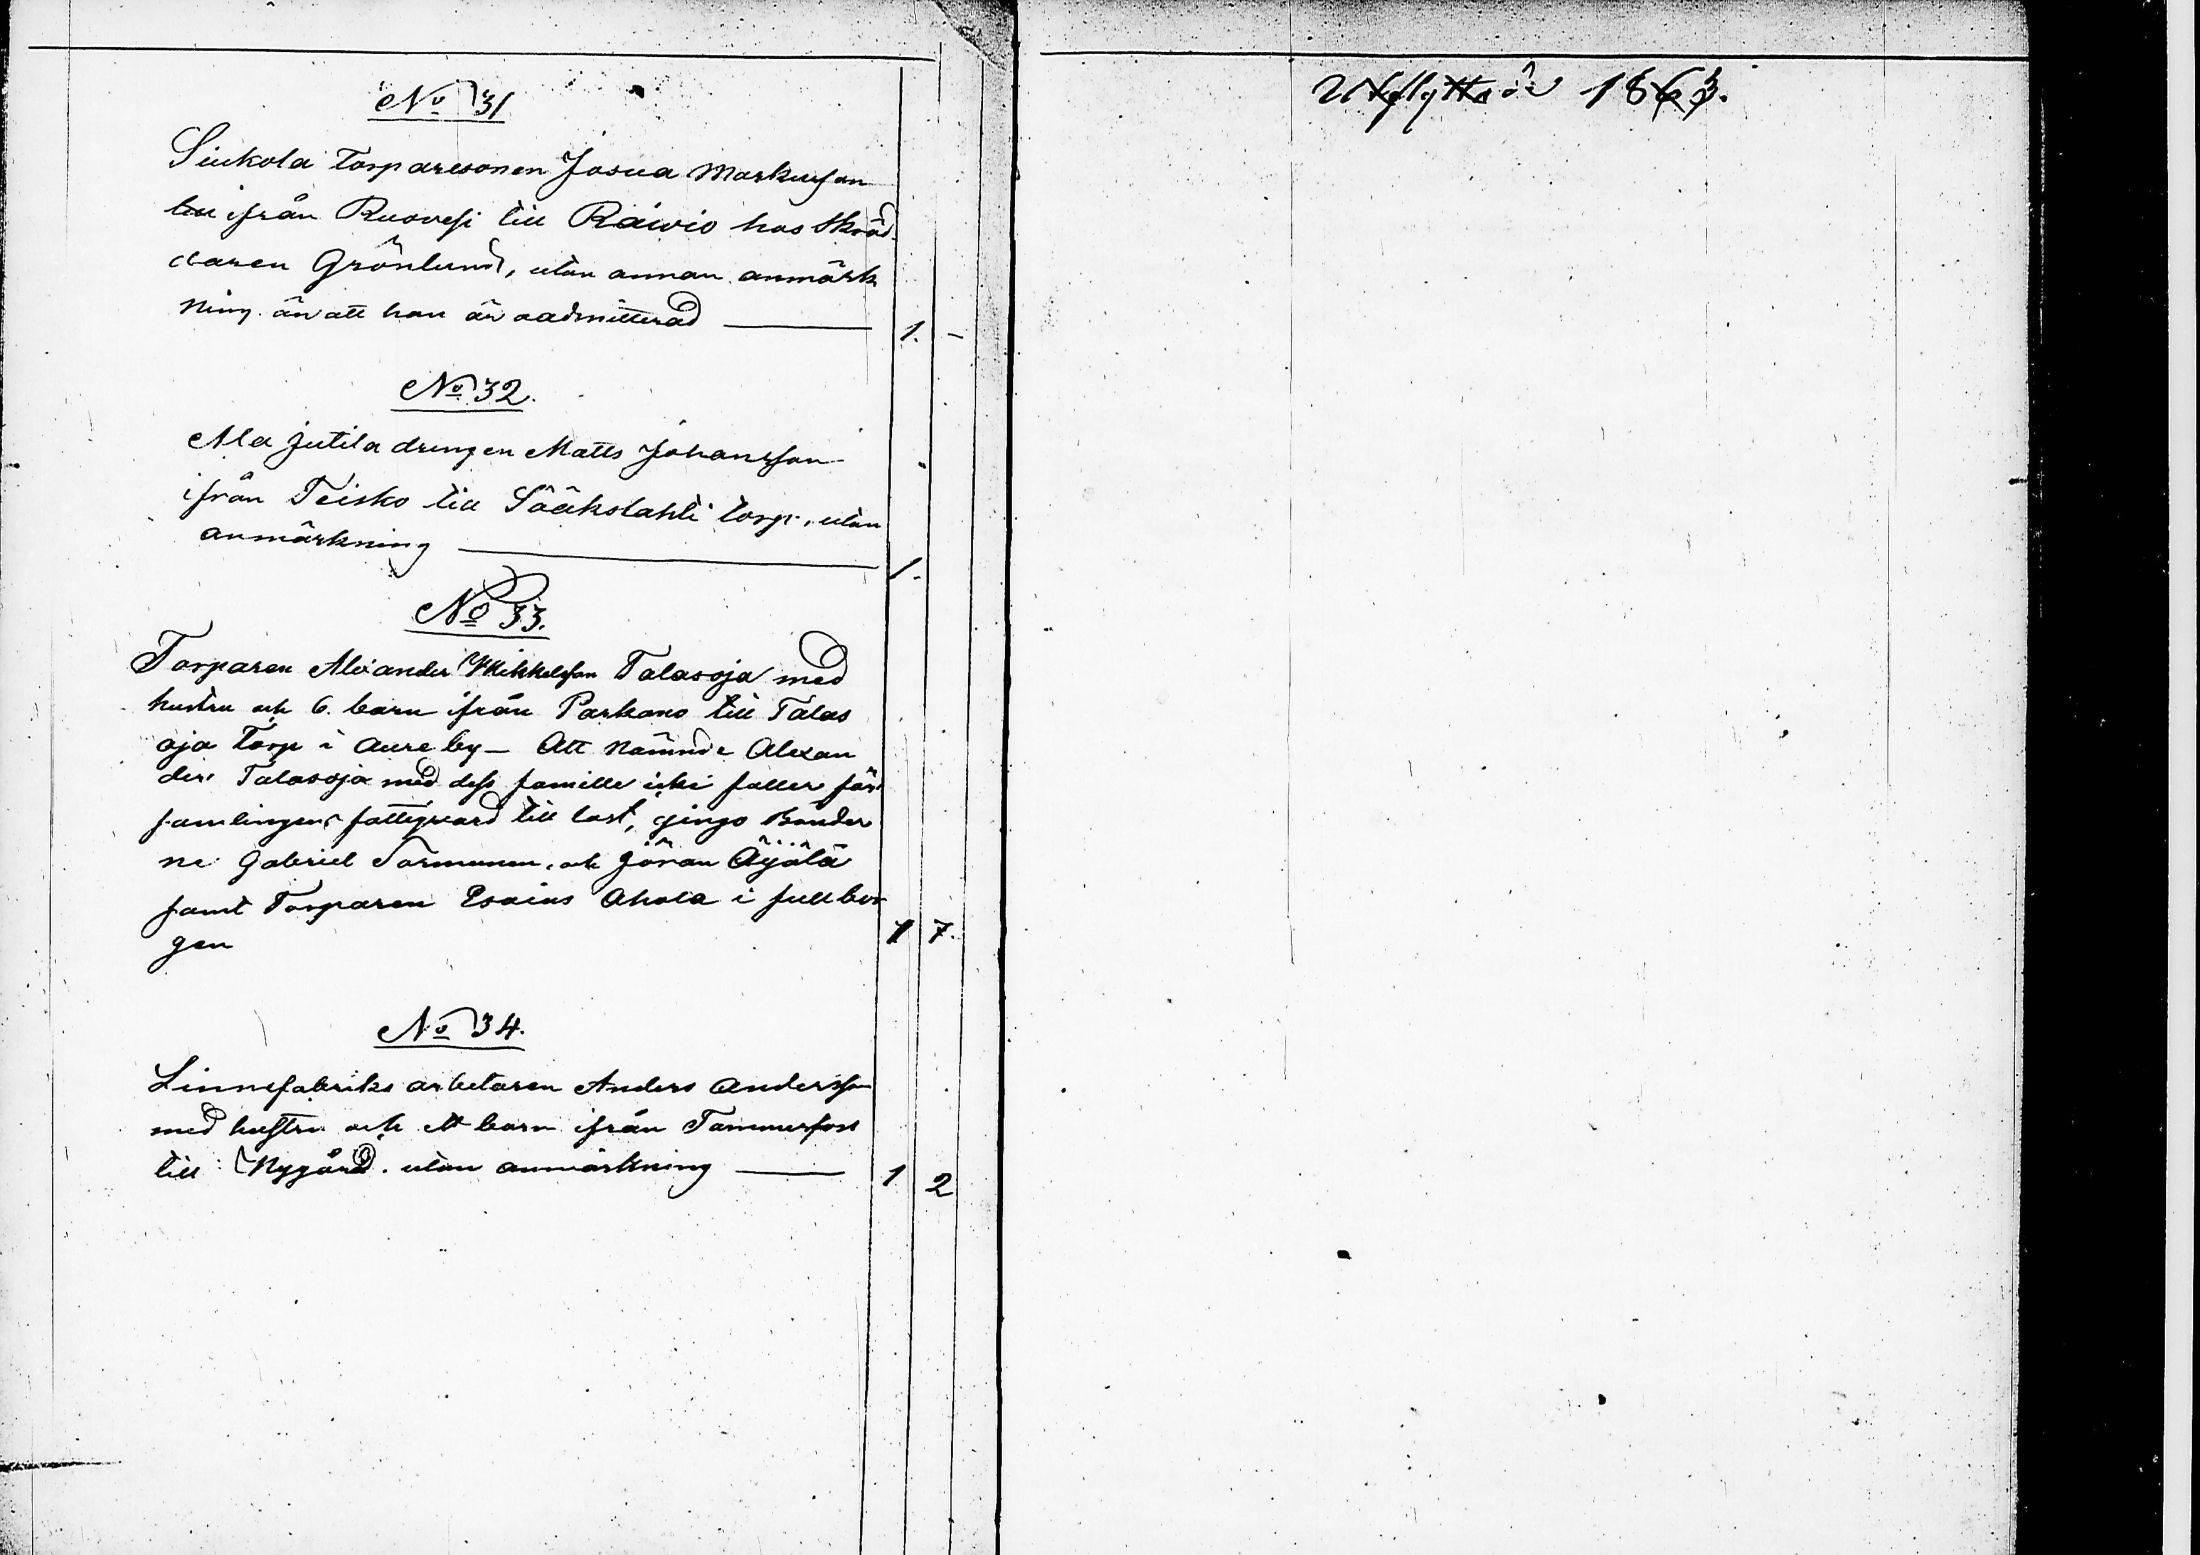 No 31
Siukola Torparesonen Josua Markusson
ifrån Ruovesi till Raivio hos Skräd-
daren Grönlund, utan annan anmärk
ning än att han är oadmitterad 1. -
No 32.
Ala Jutila drengen Matts Johansson
ifrån Teisko till Sääkslahti torp, utan
anmärkning 1.
No 33.
Torparen Alexander Mikkelsson Talasoja med
hustru och 6. barn ifrån Parkano till Talas
oja Torp i Aure by - Att nämnde Alexan
der Talasoja med dess famille icke faller för
samlingens fattigvard till last, gingo Bönder
ne Gabriel Tormunen och Jöran Äijälä
samt Torparen Esaias Ahola i full bor
gen 1 7.
No 34.
Linnefabriks arbetaren Anders Andersson
med hustru och ett barn ifrån Tammerfors
till Nygård. utan anmärkning 1 2
Utflyttade 1863.